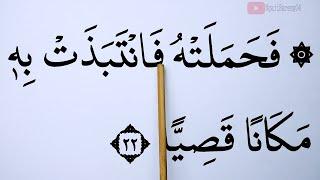 ۞ فَحَمَلَتْهُ فَانْتَبَذَتْ بِهٖ
مَكَانًا قَصِيًّا ﴿٢٢﴾